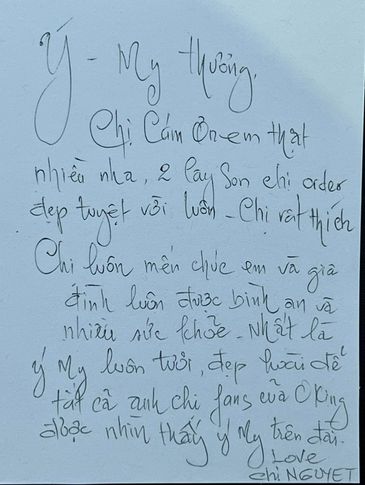 Ý - My thương,
Chị Cám Ơn em thật
nhiều nha, 2 cây Son chị order
đẹp tuyệt vời luôn - Chị rất thích
Chị luôn mến chúc em và gia
đình luôn được bình an và
nhiều sức khỏe - Nhất là
ý My luôn tươi, đẹp hoài để
tất cả anh chị fans của Oking
được nhìn thấy ý My trên đài.
Love
chị NGUYET